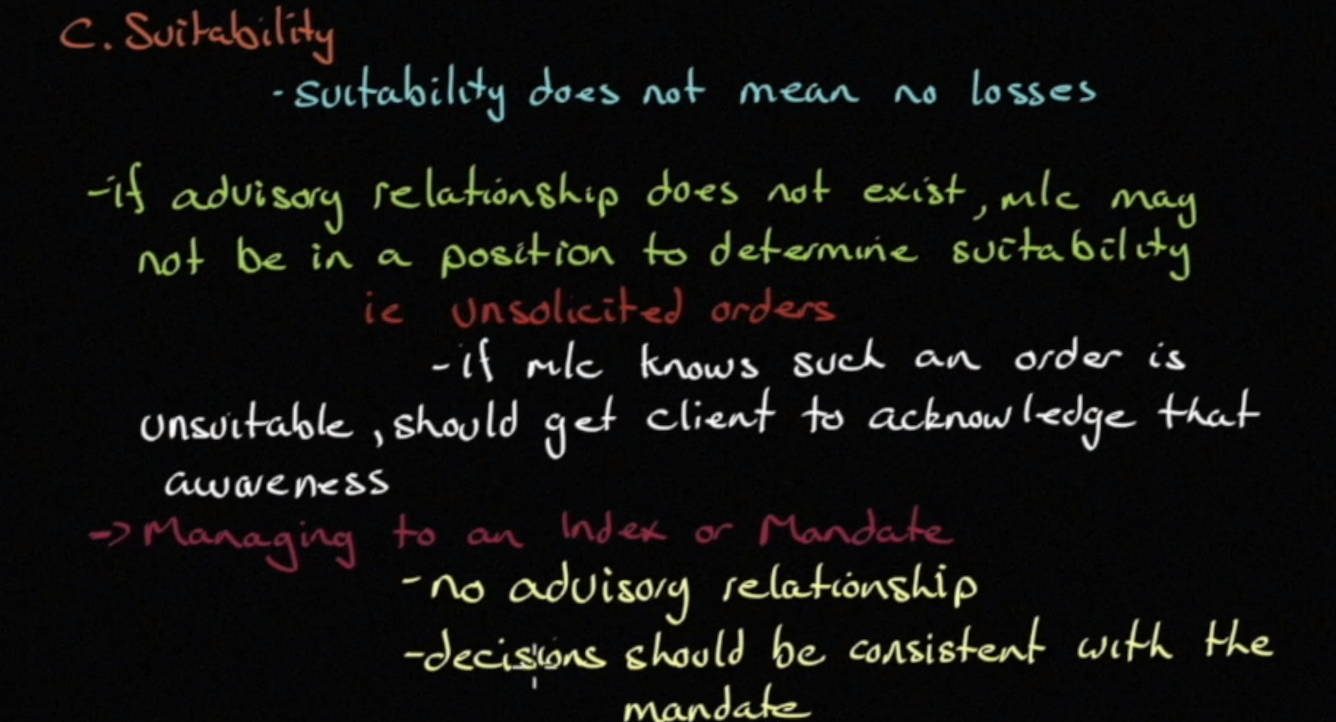 C. Suitability
- suitability does not mean no losses
- if advisory relationship does not exist, m/c may
not be in a position to determine suitability
ie unsolicited orders
- if m/c knows such an order is
unsuitable, should get client to acknowledge that
awareness
-> Managing to an Index or Mandate
- no advisory relationship
- decisions should be consistent with the
mandate